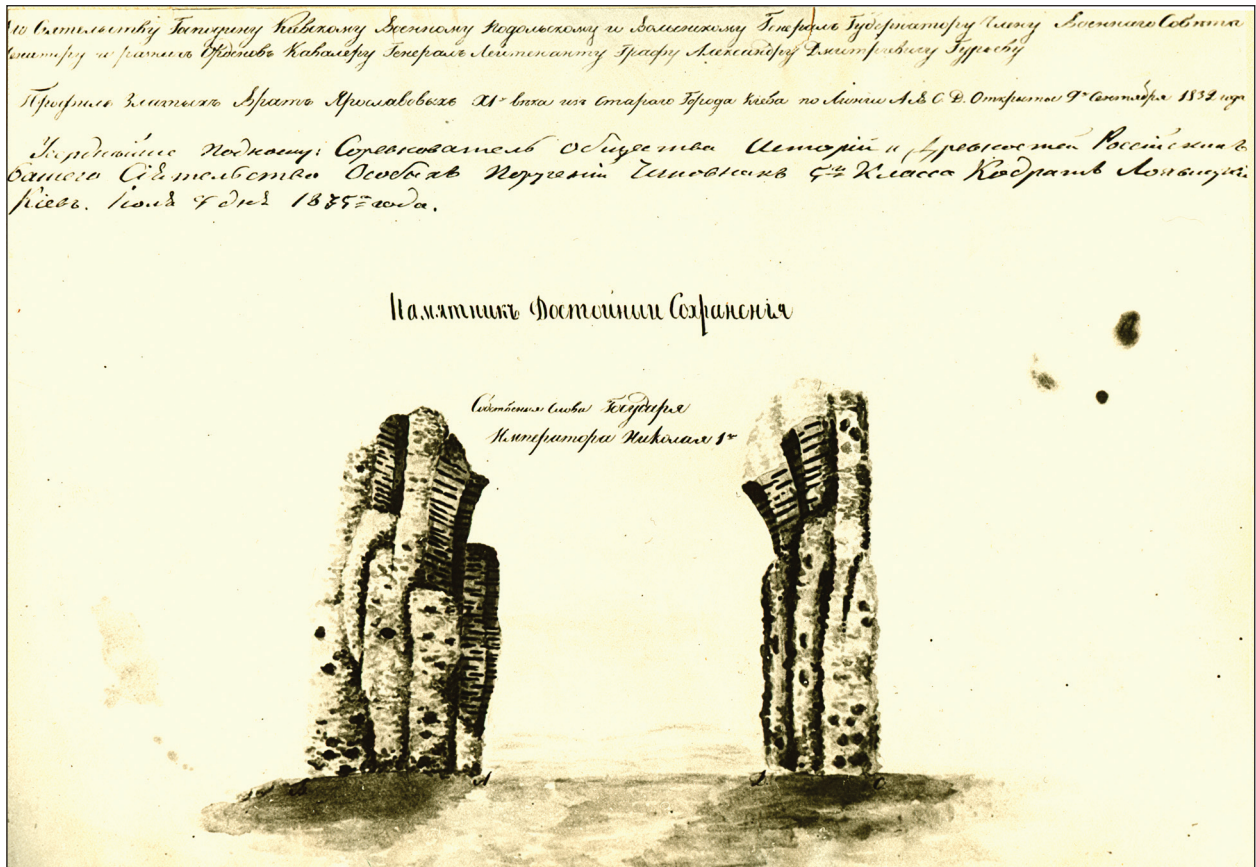 Его Сиятельству Господину Киевскому Военному Подольскому и Волынскому Генералъ Губернатору Члену Военнаго Совѣта
и разныхъ Орденовъ Кавалеру Генералъ Лейтенанту Графу Александру Дмитріевичу Гурьеву
Профиль Златыхъ Вратъ Ярославовыхъ XI вѣка изъ стараго Города Кіева по Линіи А. В. С. D. Открытые 9го Сентября 1832 года
Соревнователь Общества Исторіи и Древностей Россійскихъ
Вашего Сіятельства Особыхъ Порученій Чиновникъ 5го Класса Кодратъ Лохвицкій
Кіевъ. дня года.
Памятникъ Достойный Сохраненія
Собственныя слова Государя
Императора Николая 1го
В А D С